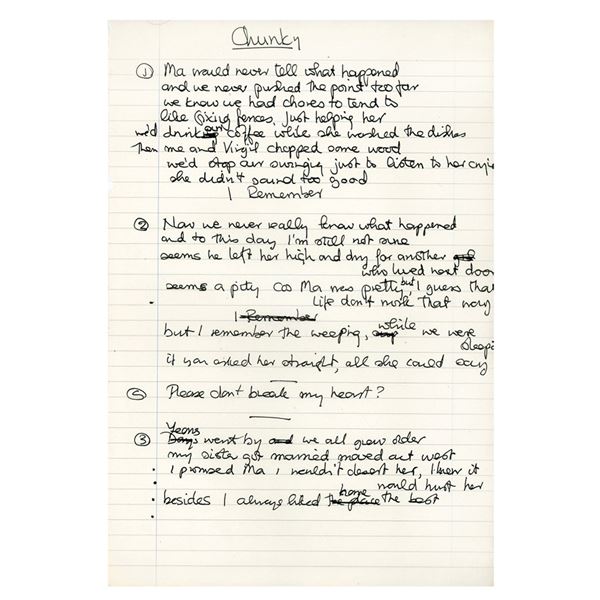 Chunky
① Ma would never tell what happened
and we never pushed the point too far
we knew we had chores to tend to
like fixing fences, just helping her
we'd drink our coffee while she washed the dishes
Then me and Virgil chopped some wood
we'd stop our swinging just to listen to her cryin
she didn't sound too good
I Remember
② Now we never really knew what happened
and to this day I'm still not sure
seems he left her high and dry for another gal
who lived next door
seems a pity cos Ma was pretty but I guess that
Life don't work that way
I Remember
but I remember the weeping, while we were
sleepi
if you asked her straight, all she could say
Please don't break my heart?
③ Years
Days went by and we all grew older
my sister got married moved out west
I promised Ma I wouldn't desert her, I knew it
would hurt her
besides I always liked the place home the best